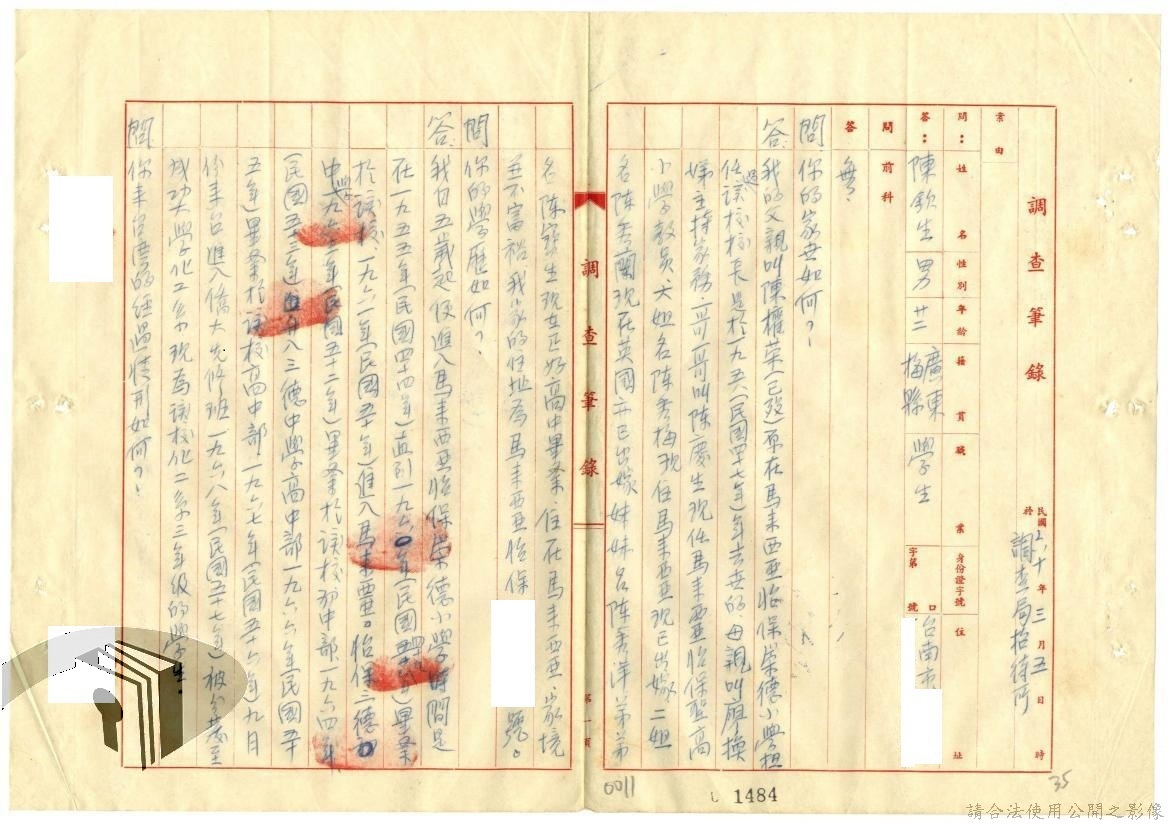 調查筆錄
民國六十年三月五日 時
於調查局招待所
案由
問：姓名 性別 年齡 籍貫 職業 身份證字號 住址
答：陳欽生 男 廿二 廣東梅縣 學生 字第 號 台南市
問 前科
答 無。
問 你的家世如何？
答 我的父親叫陳權榮（已歿）原在馬來西亞怡保崇德小學担
任該校校長是於一九五八（民國四七年）年去世的母親叫廖換
娣主持家務，哥哥叫陳慶生現住馬來西亞怡保聖高
小學教員，大姐名陈秀梅現住馬來西亞現已出嫁二姐
名陈秀蘭現在英國亦已出嫁妹妹名陈秀萍弟弟
調查筆錄
第一頁
名陳寶生現在正好高中畢業，住在馬來西亞，家境
並不富裕，我家的住址為馬來西亞怡保 號。
問 你的學歷如何？
答 我自五歲起便進入馬來西亞怡保崇德小學時間是
在一九五五年（民國四十四年）直到一九六〇年（民國 年）畢業
於該校，一九六一年（民國五十年）進入馬來西亞怡保三德
中學一九六三年（民國五十二年）畢業於該校初中部，一九六四年
（民國五十三年）進升入三德中學高中部一九六六年（民國五十
五年）畢業於該校高中部一九六七年（民國五十六年）九月
份來台進入僑大先修班一九六八年（民國五十七年）被分發至
成功大學化工系現為該校化工系三年級的學生。
問 你來台灣的經過情形如何？
0011
1484
35
請合法使用公開之影像